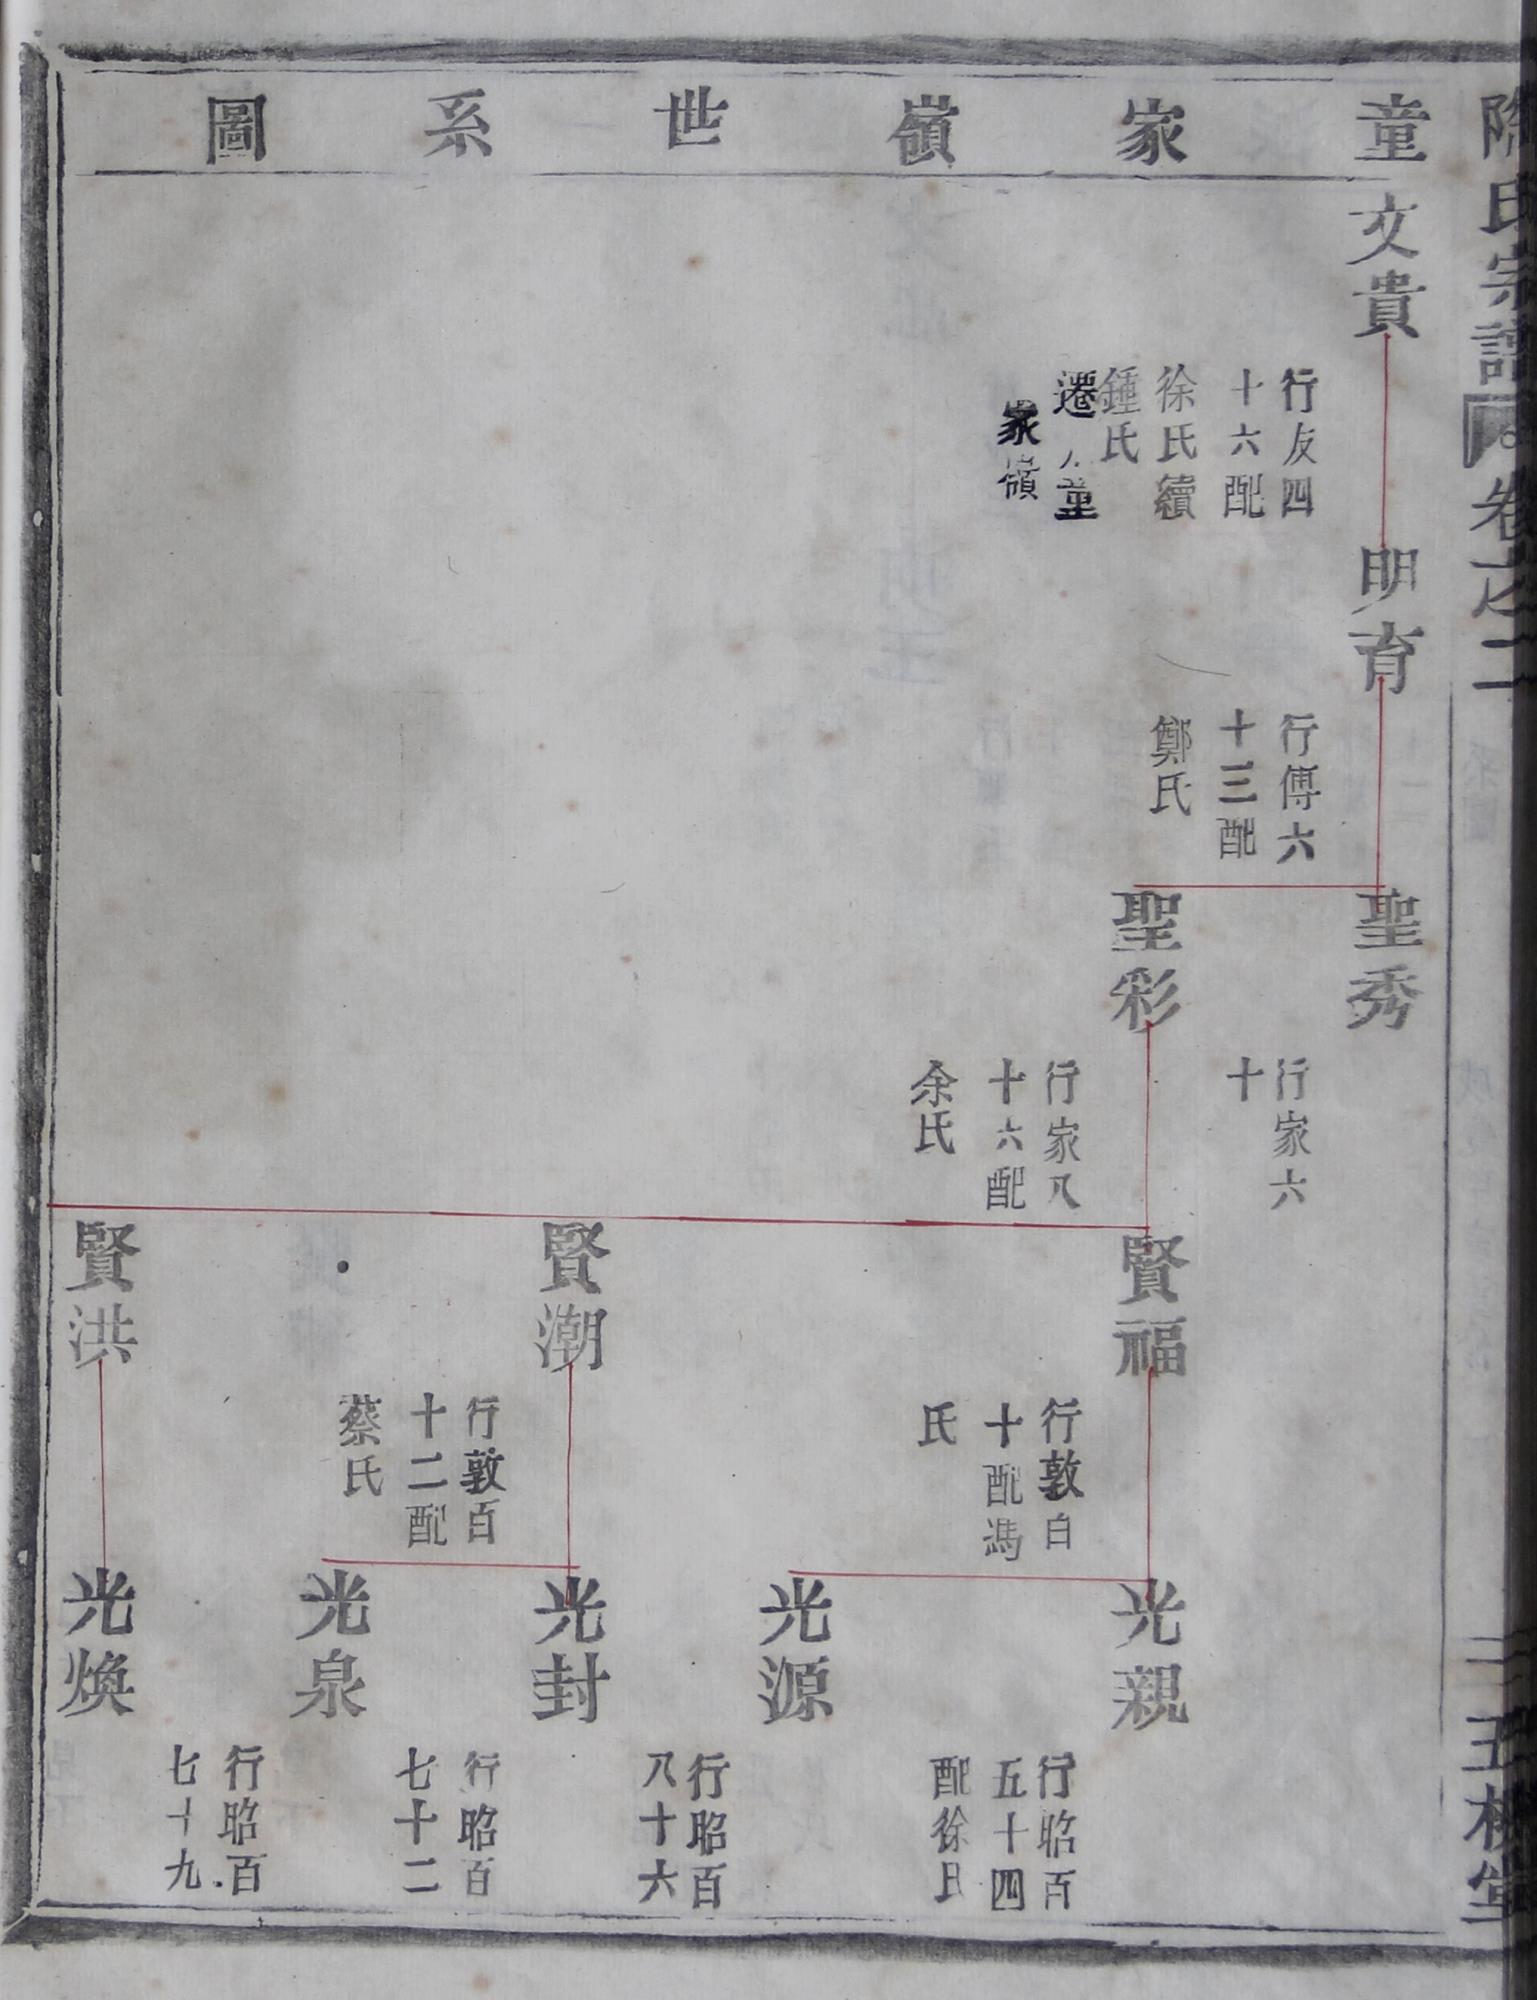 童家嶺世系圖
陶氏宗譜
卷之二
二
五柳堂
文貴
行友四
十六配
徐氏續
鍾氏
遷童
家嶺
明育
行傅六
十三配
鄭氏
聖秀
行家六
十
聖彩
行家八
十六配
余氏
賢福
行敦百
十配馮
氏
賢潮
行敦百
十二配
蔡氏
賢洪
光親
行昭百
五十四
配徐氏
光源
光封
行昭百
八十六
光泉
行昭百
七十二
光煥
行昭百
七十九